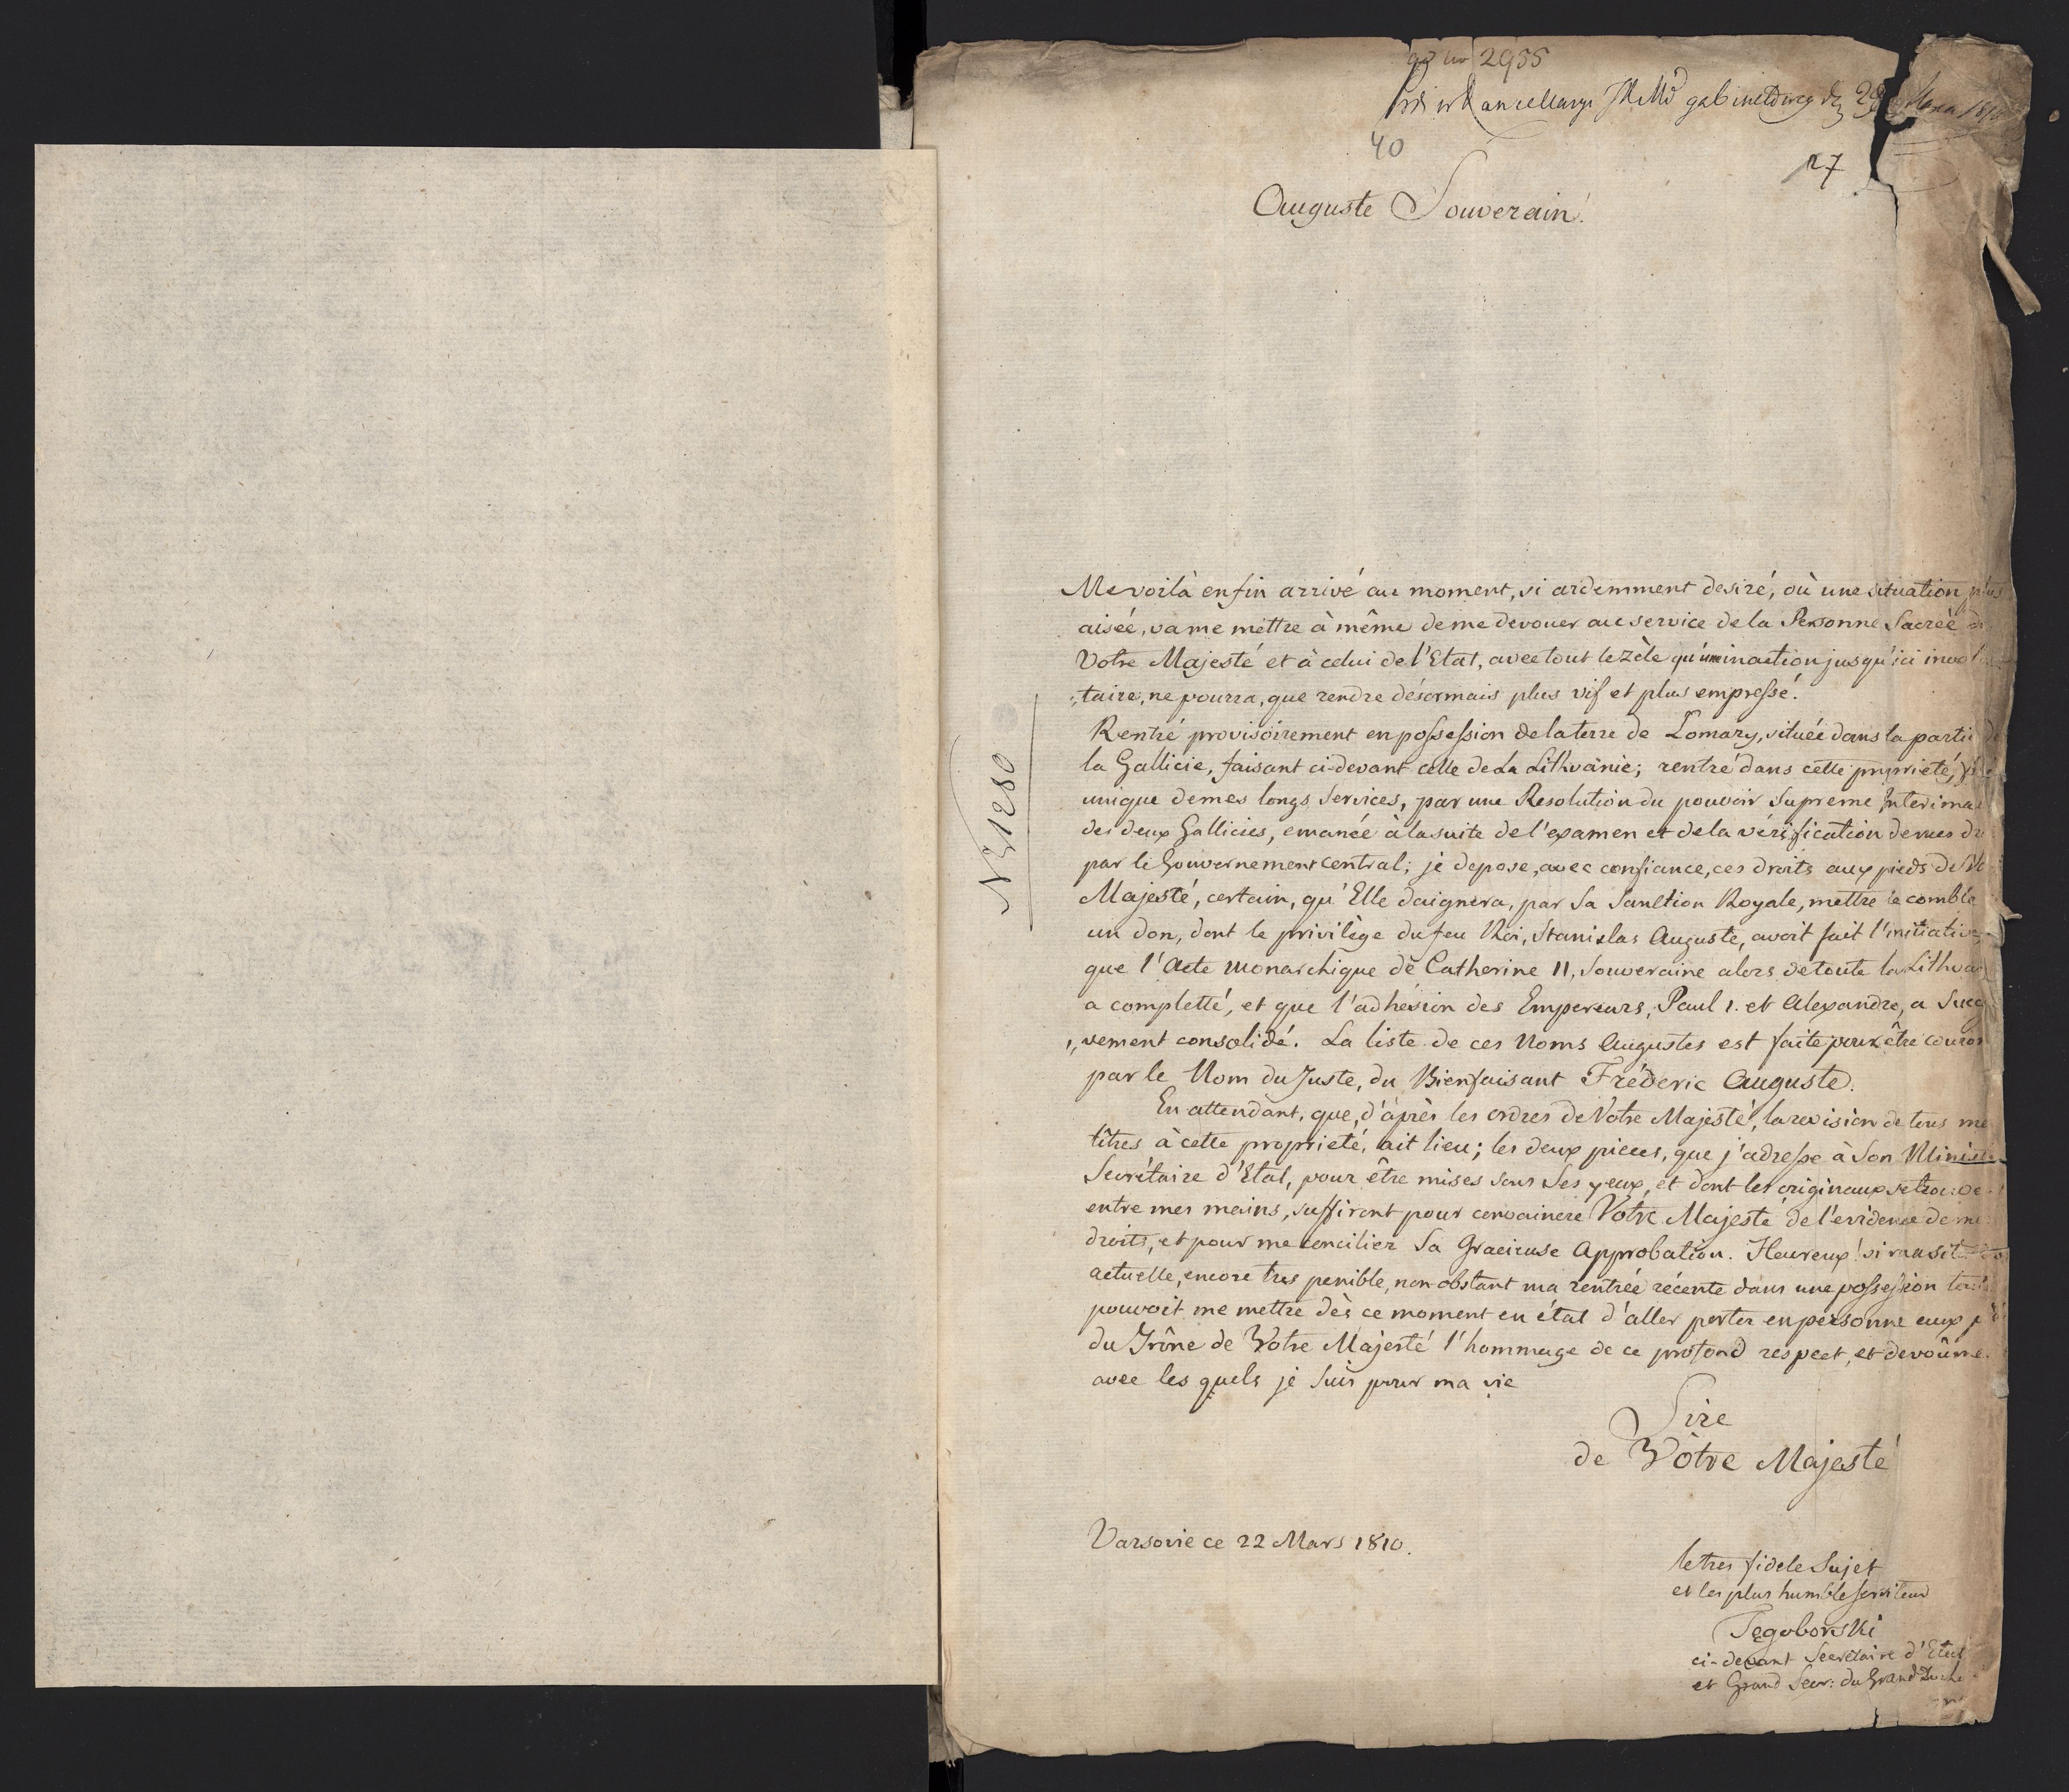 2955
40
27
Auguste Souverain!
Me voilà enfin arrivé au moment, si ardemment desiré, où une situation plus
aisée, va me mettre à même de me devouer au service de la Personne Sacrée de
Votre Majesté et à celui de l'Etat, avec tout le zèle qu'une inaction jusqu'ici invol
taire, ne pourra, que rendre désormais plus vif et plus empressé.
Rentré provisoirement en possession de la terre de Lomazy, située dans la partie de
la Gallicie, faisant ci-devant celle de La Lithvanie; rentré dans cette proprieté,
unique de mes longs Services, par une Resolution du pouvoir Supreme Interima
des deux Gallicies, emanée à la suite de l'examen et de la vérification de mes dr
par le Gouvernement central; je depose, avec confiance, ces droits aux pieds de Vo
Majesté, certain, qu'Elle daignera, par Sa Sanction Royale, mettre le comble
un don, dont le privilège du feu Roi, Stanislas Auguste, avoit fait l'initiative
que l'Acte Monarchique de Catherine II, Souveraine alors de toute la Lithva
a completté, et que l'adhésion des Empereurs, Paul I. et Alexandre, a Succ
vement consolidé. La liste de ces Noms Augustes est faite pour être couron
par le Nom du Juste, du Bienfaisant Fréderic Auguste.
En attendant, que, d'après les ordres de Votre Majesté, la revision de tous me
titres à cette proprieté, ait lieu; les deux pieces, que j'adresse à Son Minist
Secrétaire d'Etat, pour être mises sous Ses yeux, et dont les originaux se trouve
entre mes mains, suffiront pour convaincre Votre Majesté de l'evidence de me
droits, et pour me concilier Sa Gracieuse Approbation. Heureux! si ma sit
actuelle, encore tres penible, non obstant ma rentrée récente dans une possession
pouvoit me mettre dès ce moment en état d'aller porter en personne aux
du Trône de Votre Majesté l'hommage de ce profond respect, et devoûme
avec les quels je suis pour ma vie
Sire
de Vòtre Majesté
Varsovie ce 22 Mars 1810.
le tres fidele Sujet
et les plus humble serviteur
Tęgoborski
ci-devant Secrétaire d'Etat
et Grand Secr: du Grand Duche
Nr 1280